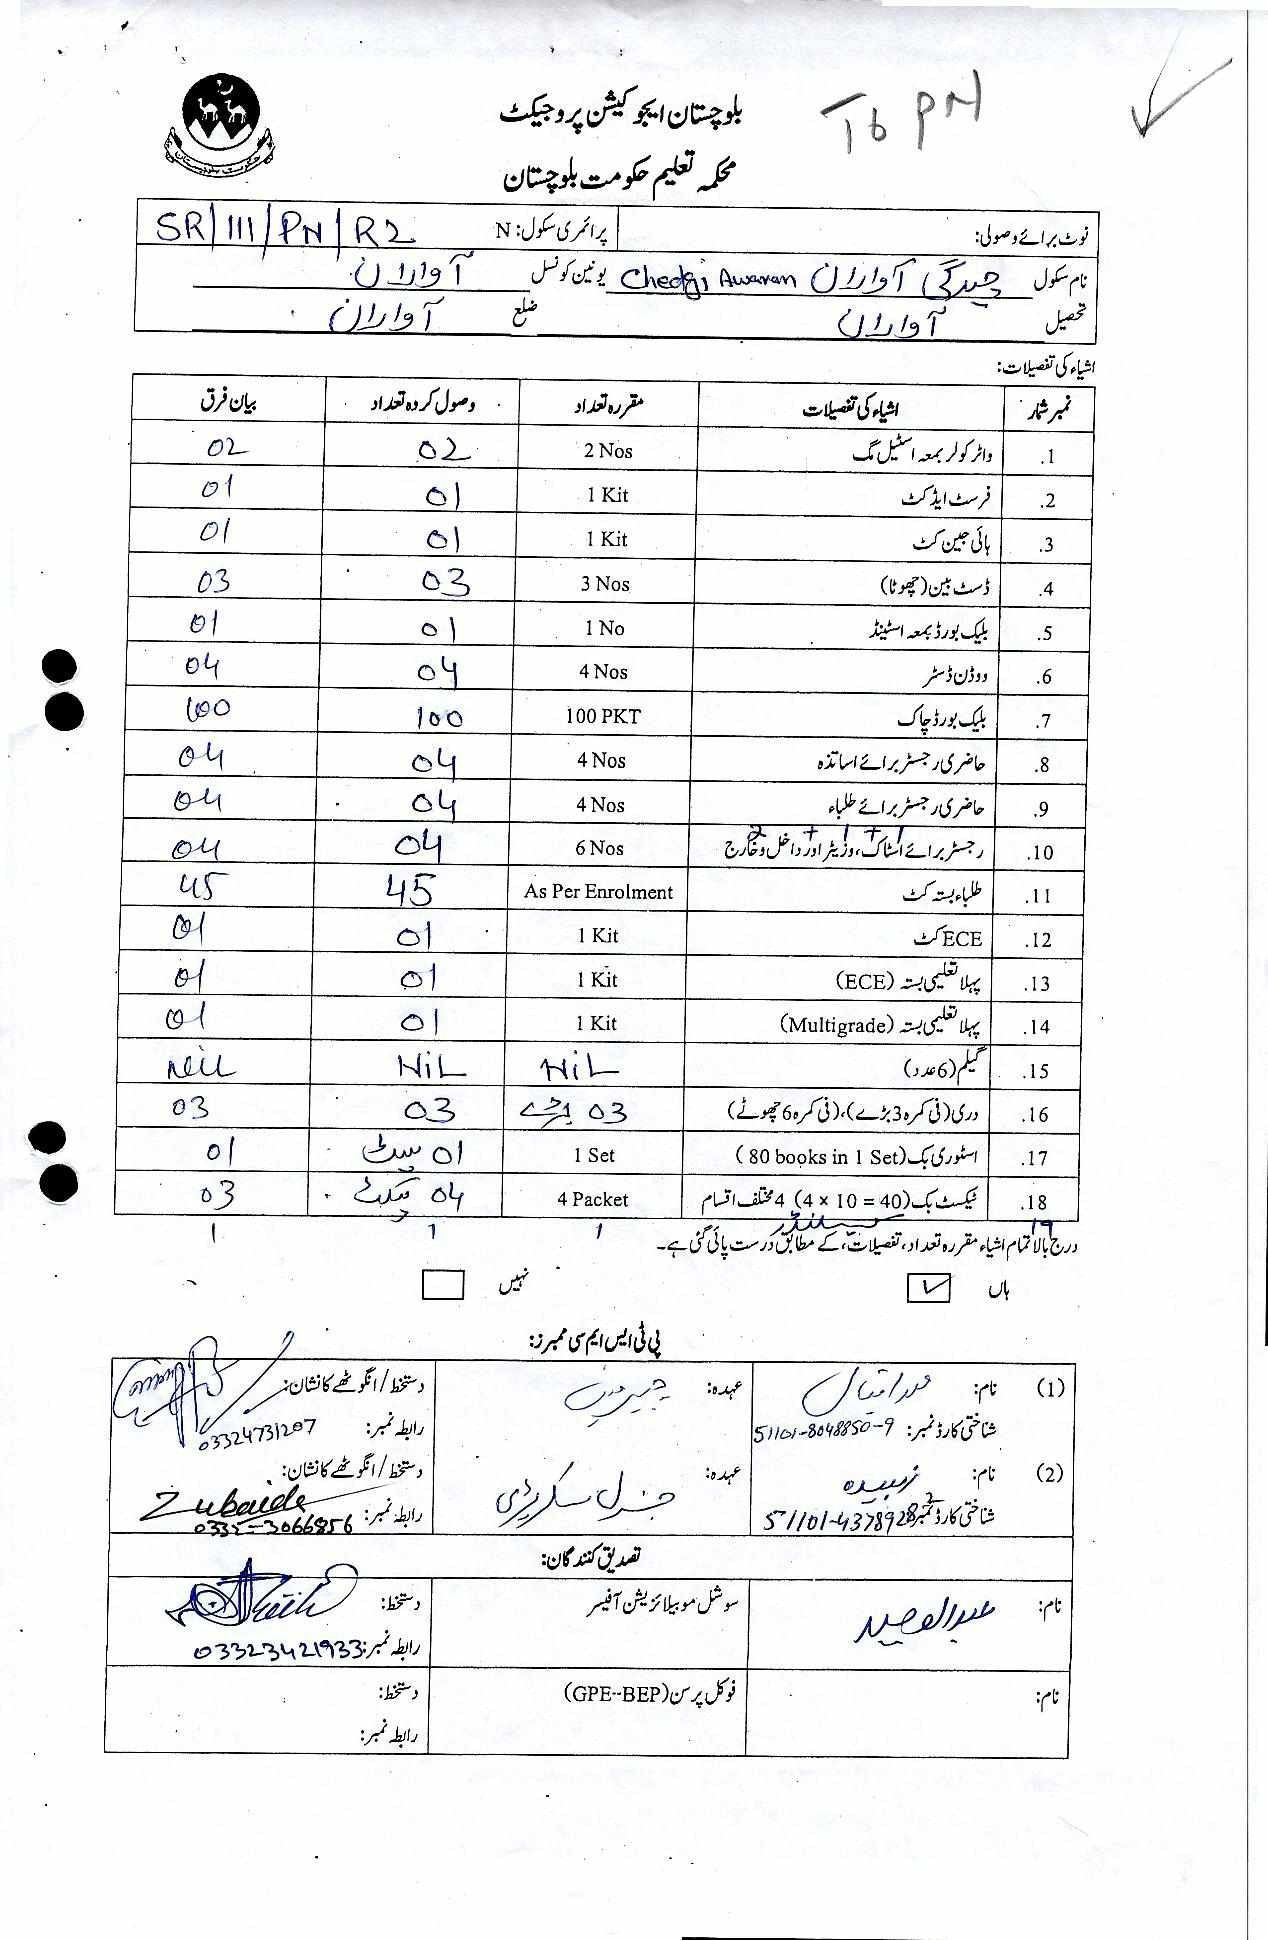 To PN
بلوچستان ایجوکیشن پروجیکٹ
محکمہ تعلیم حکومت بلوچستان
نوٹ برائے وصولی: پرائمری سکول: N SR/111/PN/R2
نام سکول چیدگی آواران Chedgi Awaran یونین کونسل آواران
تحصیل آواران ضلع آواران
اشیاء کی تفصیلات:
نمبر شمار اشیاء کی تفصیلات مقررہ تعداد وصول کردہ تعداد بیان فرق
1. واٹر کولر بمعہ اسٹیل مگ 2 Nos 02 02
2. فرسٹ ایڈ کٹ 1 Kit 01 01
3. ہائی جین کٹ 1 Kit 01 01
4. ڈسٹ بین (چھوٹا) 3 Nos 03 03
5. بلیک بورڈ بمعہ اسٹینڈ 1 No 01 01
6. ووڈن ڈسٹر 4 Nos 04 04
7. بلیک بورڈ چاک 100 PKT 100 100
8. حاضری رجسٹر برائے اساتذہ 4 Nos 04 04
9. حاضری رجسٹر برائے طلباء 4 Nos 04 04
10. رجسٹر برائے اسٹاک، وزیٹر اور داخل و خارج 6 Nos 04 04
11. طلباء بستہ کٹ As Per Enrolment 45 45
12. ECE کٹ 1 Kit 01 01
13. پہلا تعلیمی بستہ (ECE) 1 Kit 01 01
14. پہلا تعلیمی بستہ (Multigrade) 1 Kit 01 01
15. گیلم (6 عدد) NiL NiL NiL
16. دری (فی کمرہ 3 بڑے)، (فی کمرہ 6 چھوٹے) 03 بڑے 03 03
17. اسٹوری بک (80 books in 1 Set) 1 Set 01 سیٹ 01
18. ٹیکسٹ بک (4 x 10 = 40) 4 مختلف اقسام 4 Packet 04 پیکٹ 03
19 1 1 1
درج بالا تمام اشیاء مقررہ تعداد، تفصیلات، کے مطابق درست پائی گئی ہے۔
ہاں ✓ نہیں
پی ٹی ایس ایم سی ممبرز:
(1) نام: عہدہ: چیئرمین دستخط/انگوٹھے کا نشان:
شناختی کارڈ نمبر: 51101-8048850-9 رابطہ نمبر: 03324731207
(2) نام: زبیدہ عہدہ: جنرل سکریٹری دستخط/انگوٹھے کا نشان: Zubaida
شناختی کارڈ نمبر: رابطہ نمبر: 0335-3066856
تصدیق کنندگان:
نام: سوشل موبیلائزیشن آفیسر دستخط:
رابطہ نمبر: 03323421933
نام: فوکل پرسن (GPE-BEP) دستخط:
رابطہ نمبر: